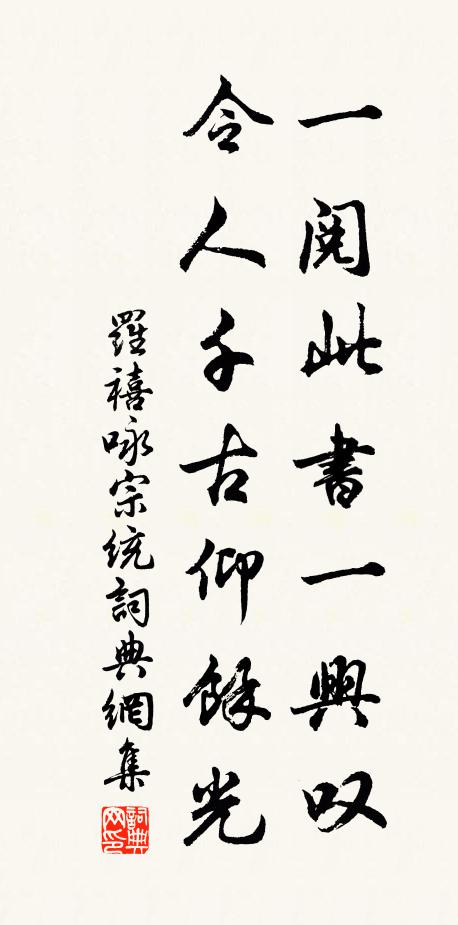 一阅此書一興叹
令人千古仰餘光
羅禧咏宗統詞典網集
詞典网印